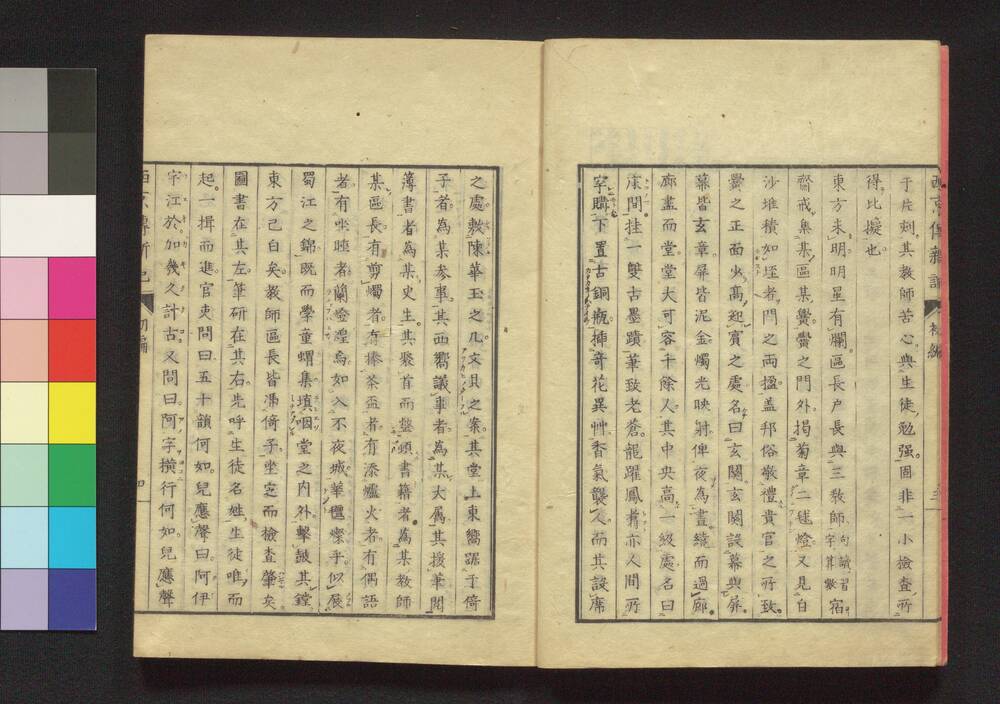 于片刻其教師苦心與生徒勉强固非一小檢査所
得比擬也
東方未明明星有爛區長戸長與三教師句讀習字算數宿
齋戒集某區某黌黌之門外揭菊章二毬燈又見白
沙堆積如坻者門之兩搵盖邦俗敬禮貴官之所致
黌之正面少高迎賓之處名曰玄關玄關設幕與屏
幕皆玄章屏皆泥金燭光映射俾夜為晝繞而過廊
廊盡而堂堂大可容千餘人其中央高一級處名曰
床間挂一雙古墨蹟筆致老蒼龍躍鳳翥亦人間所
罕購下置古銅瓶挿奇花異艸香氣襲人而其設席
之處敷陳華玉之几文具之案其堂上東嚮踞于倚
子者為某参事其西嚮議事者為某大属其援筆閲
薄書者為某史生其聚首而整頓書籍者為某教師
某區長有剪燭者有捧茶盃者有添爐火者有偶語
者有坐睡者蘭燈煌烏如入不夜城華氊燦乎似展
蜀江之錦既而學童蝟集填咽堂之内外擊皷其鏜
東方已白矣教師區長皆凴倚子坐定而檢査肇矣
圖書在其左筆研在其右先呼生徒名姓生徒唯而
起一揖而進官吏問曰五十韻何如兒應聲曰阿伊
宇江於加幾久計古又問曰阿字横行何如兒應聲
初編
初編
三
四